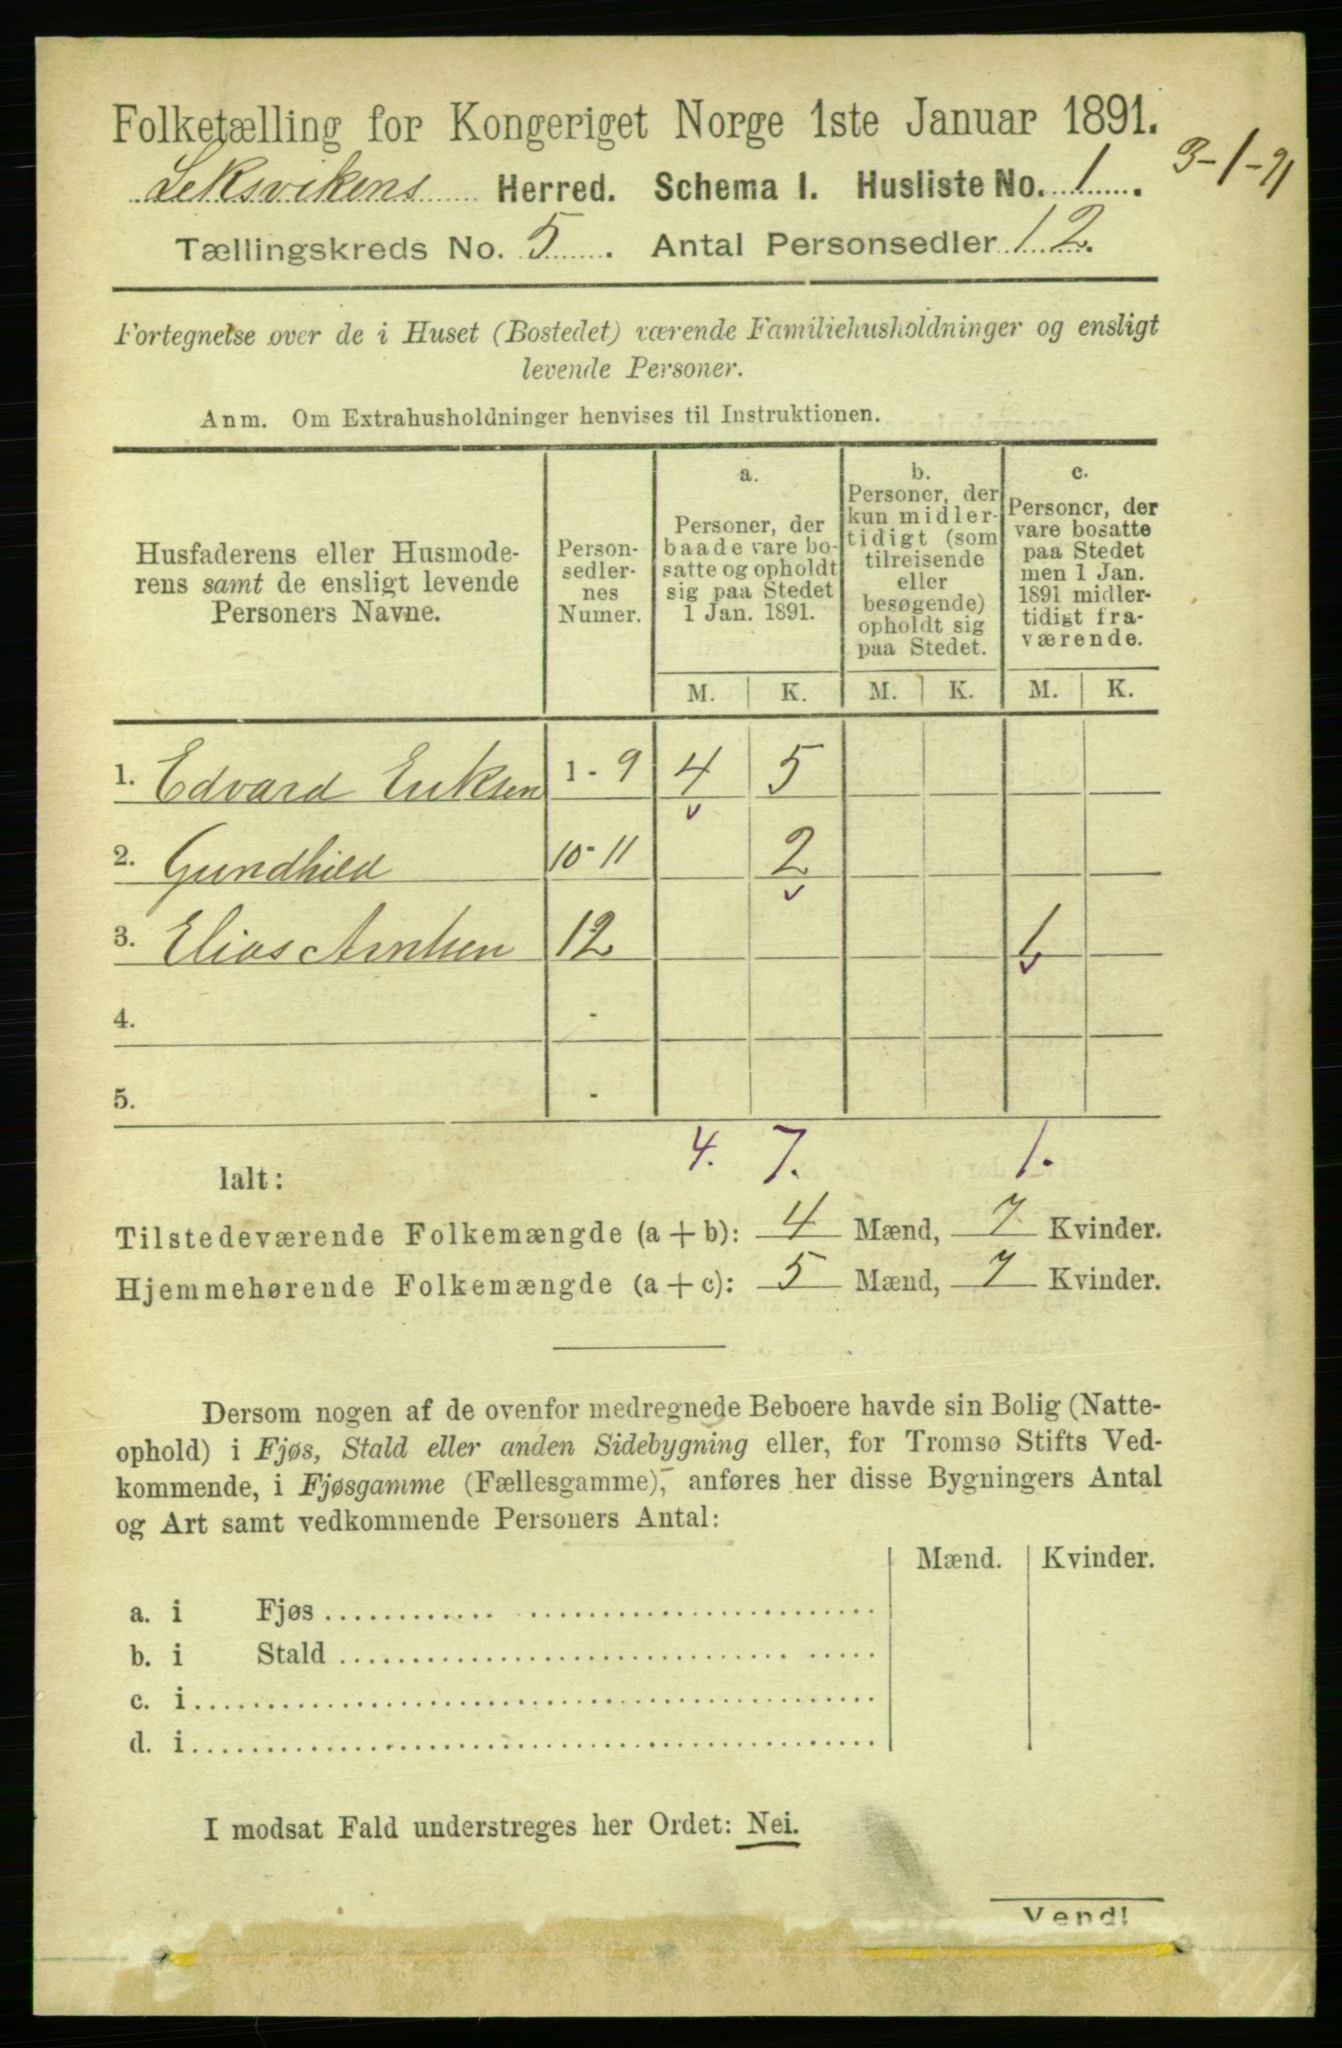 Folketælling for Kongeriget Norge 1ste Januar 1891.
3-1-91
Leksvikens Herred. Schema 1. Husliste No. 1.
Tællingskreds No. 5. Antal Personsedler 12.
Fortegnelse over de i Huset (Bostedet) værende Familiehusholdninger og ensligt
levende Personer.
Anm. Om Extrahusholdninger henvises til Instruktionen.
Husfaderens eller Husmode-
rens samt de ensligt levende
Personers Navne.
Person-
sedler-
nes
Numer.
a.
Personer, der
baade vare bo-
satte og opholdt
sig paa Stedet
1 Jan. 1891.
b.
Personer, der
kun midler-
tidigt (som
tilreisende
eller
besøgende)
opholdt sig
paa Stedet.
c.
Personer, der
vare bosatte
paa Stedet
men 1 Jan.
1891 midler-
tidigt fra-
værende.
M. K. M. K. M. K.
1. Edvard Eriksen 1 - 9 4 5
2. Gundhild 10-11 2
3. Elias Arntsen 12 1
4. -
5. -
4. 7. 1.
Ialt:
Tilstedeværende Folkemængde (a + b): 4 Mænd, 7 Kvinder.
Hjemmehørende Folkemængde (a + c): 5 Mænd, 7 Kvinder.
Dersom nogen af de ovenfor medregnede Beboere havde sin Bolig (Natte-
ophold) i Fjøs, Stald eller anden Sidebygning eller, for Tromsø Stifts Ved-
kommende, i Fjøsgamme (Fællesgamme), anføres her disse Bygningers Antal
og Art samt vedkommende Personers Antal:
Mænd. Kvinder.
a. i Fjøs
b. i Stald
c. i
d. i
I modsat Fald understreges her Ordet: Nei.
Vend!